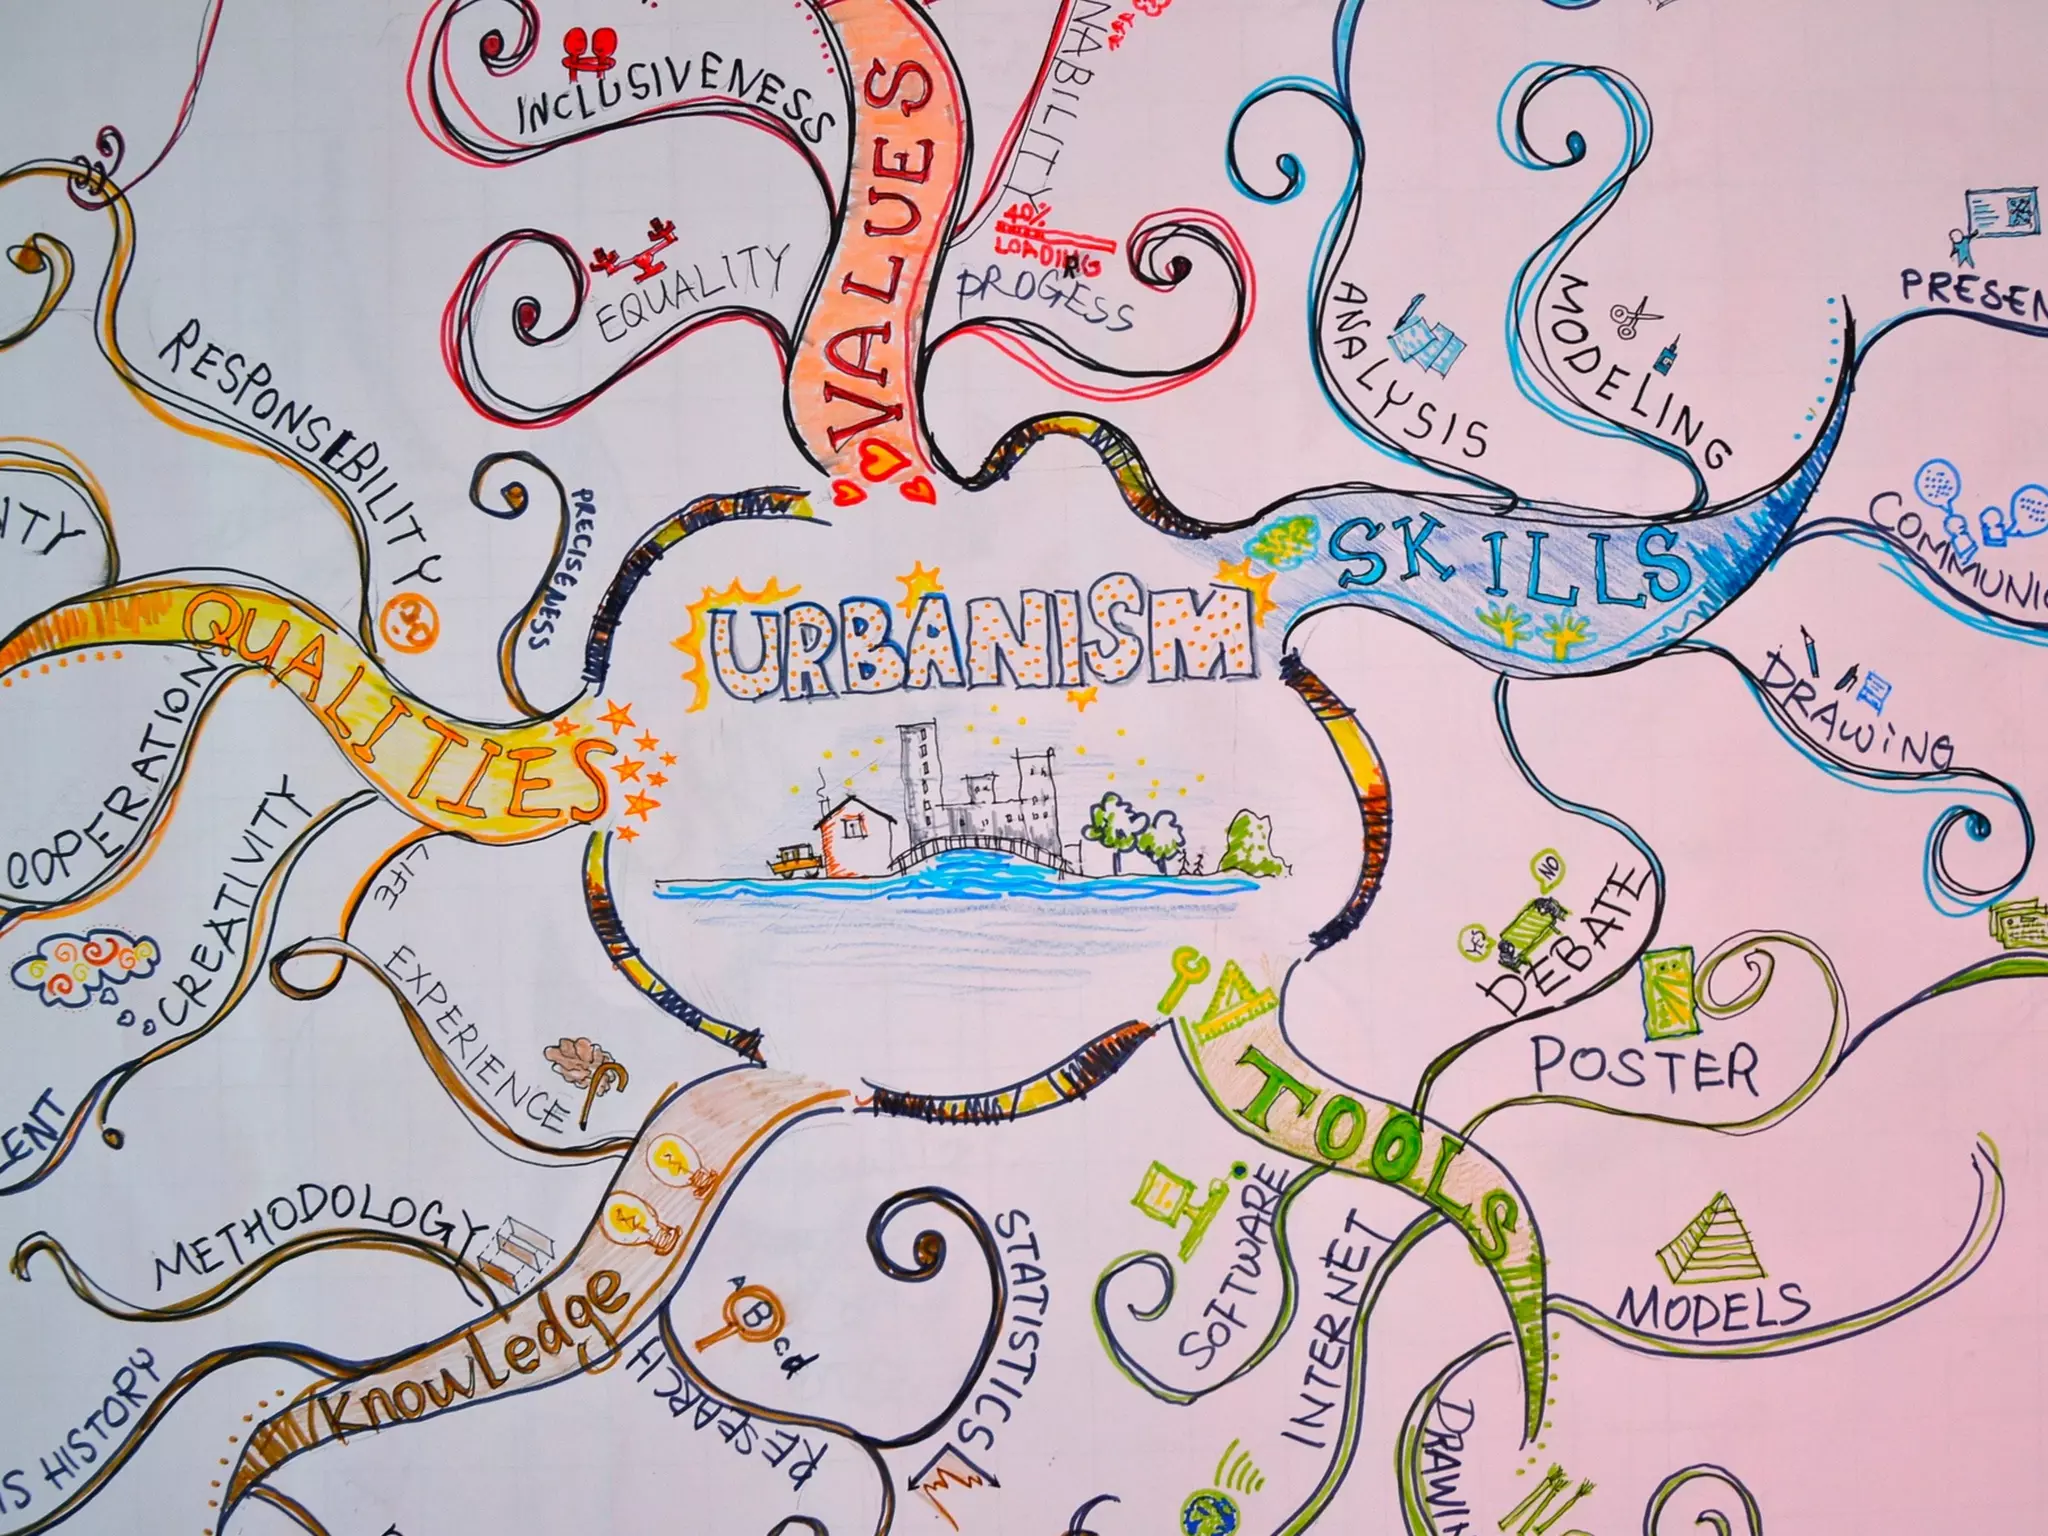 URBANISM
VALUES
INCLUSIVENESS
EQUALITY
NABILITY
40%
LOADING
PROGESS
R
SKILLS
ANALYSIS
MODELING
PRESEN
COMMUNIC
DRAWING
DEBATE
NO
YES
TOOLS
POSTER
MODELS
DRAWIN
INTERNET
SOFTWARE
Knowledge
STATISTICS
RESEARCH
A B C d
METHODOLOGY
IS HISTORY
LIFE
EXPERIENCE
QUALITIES
PRECISENESS
RESPONSIBILITY
ITY
COPERATION
CREATIVITY
LENT